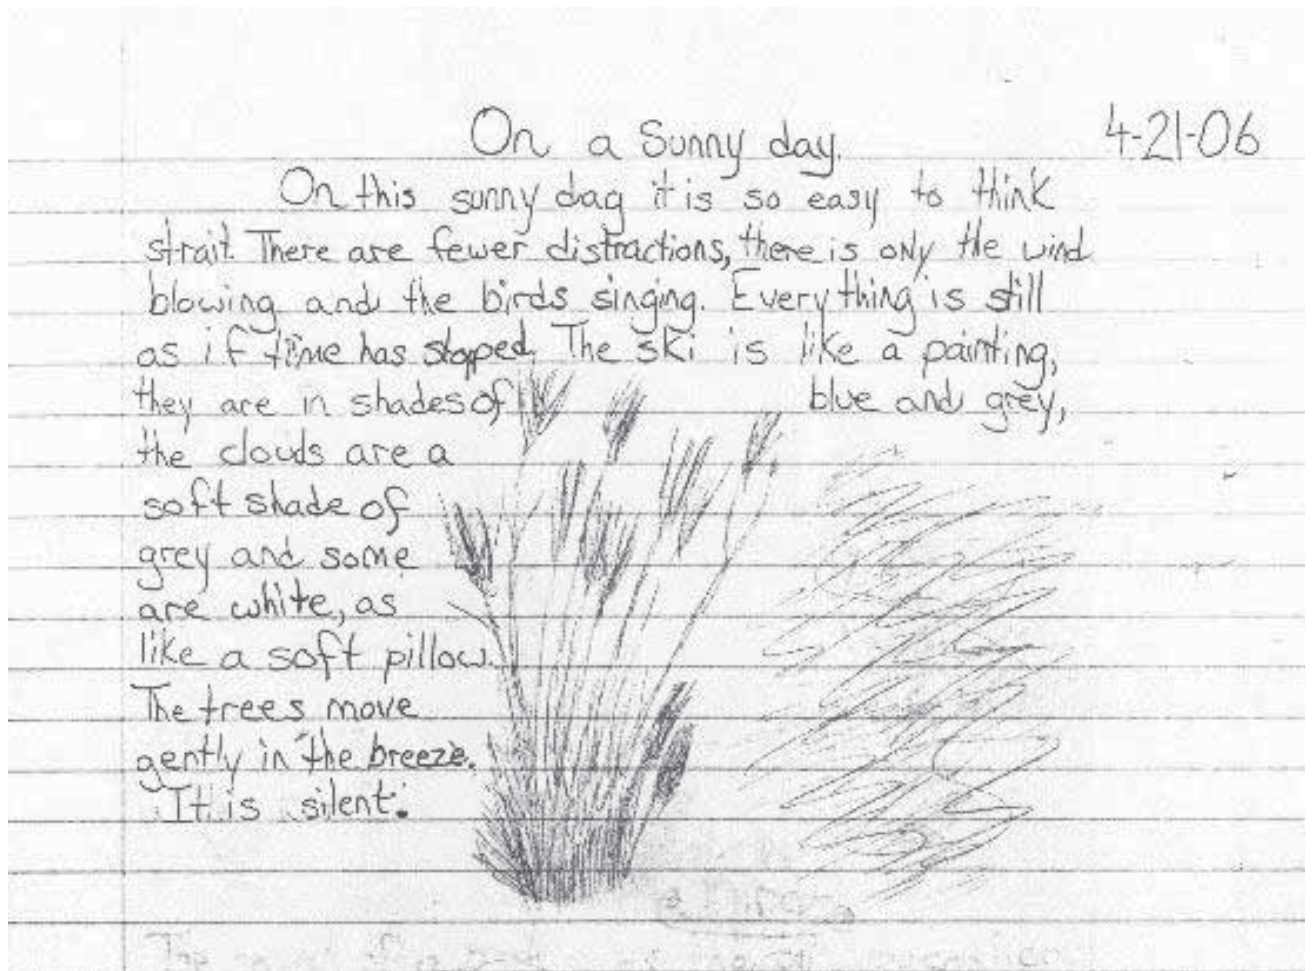 On a Sunny day.
4-21-06
On this sunny day it is so easy to think
strait. There are fewer distractions, there is only the wind
blowing and the birds singing. Everything is still
as if time has stopped. The ski is like a painting,
they are in shades of blue and grey,
the clouds are a
soft shade of
grey and some
are white, as
like a soft pillow.
The trees move
gently in the breeze.
It is silent.